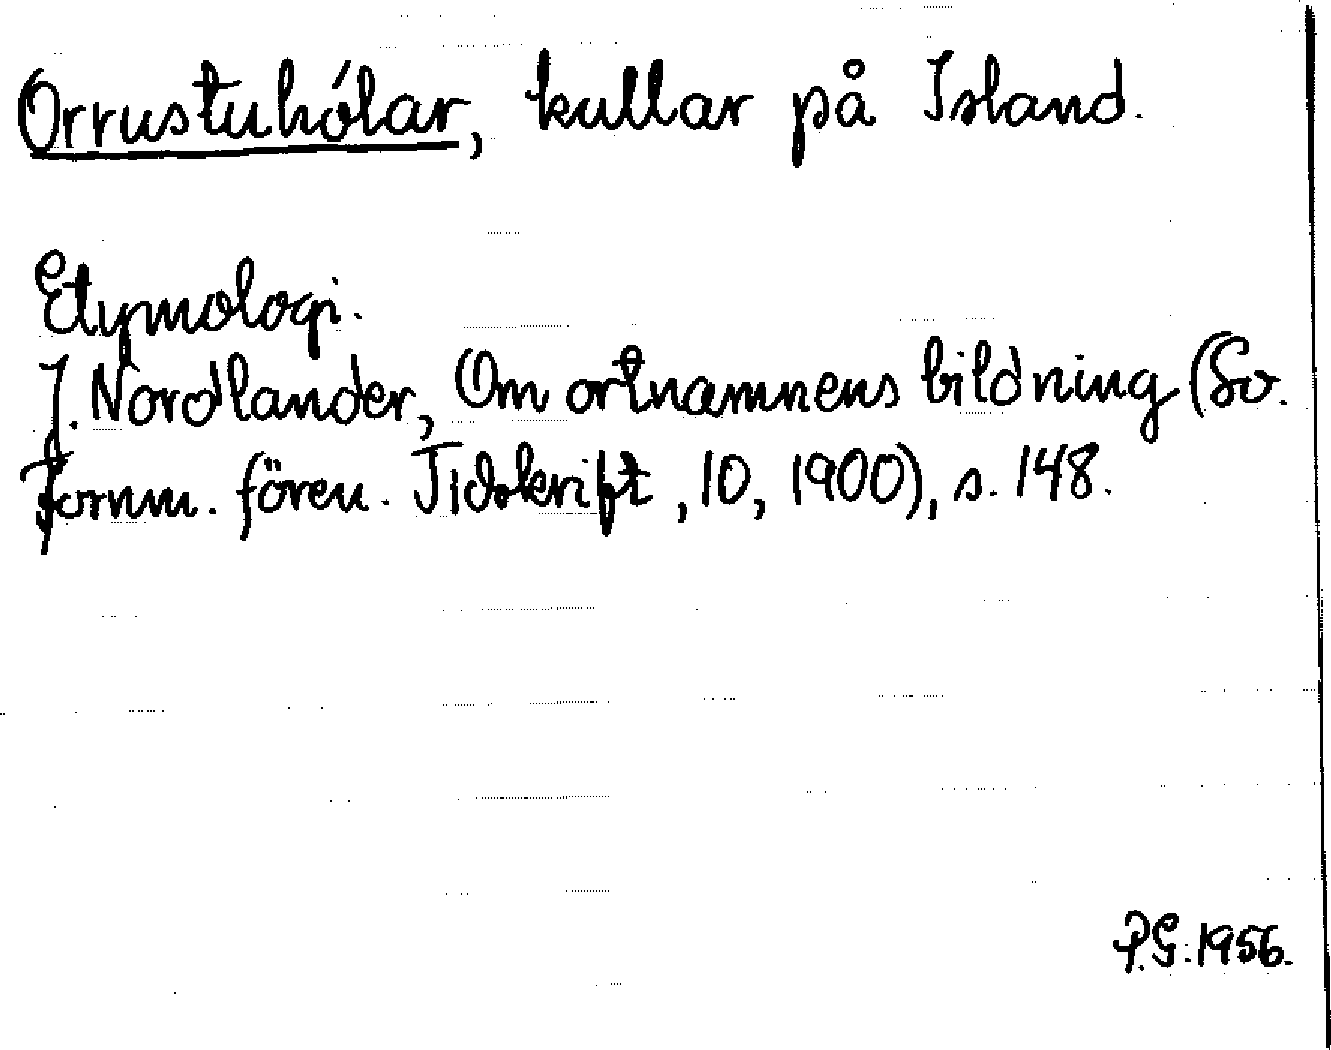 Orrustuhólar, kullar på Island.
Etymologi.
J. Nordlander, Om ortnamnens bildning (Sv.
Fornm. fören. Tidskrift, 10, 1900), s. 148.
P.G. 1956.